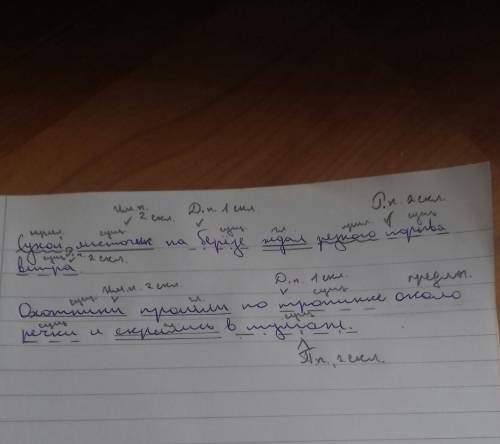 Им.п. 2 скл. Д.п. 1 скл Р.п. 2 скл.
прил. сущ. сущ. гл прил. сущ.
Сухой листочек на березе ждал резкого порыва
сущ. 2 скл.
ветра
Им.п. 2 скл. Д.п. 1 скл.
сущ. гл. сущ. предлог.
Охотники прошли по тропинке около
сущ. гл. сущ.
речки и скрылись в тумане.
П.п. 2 скл.